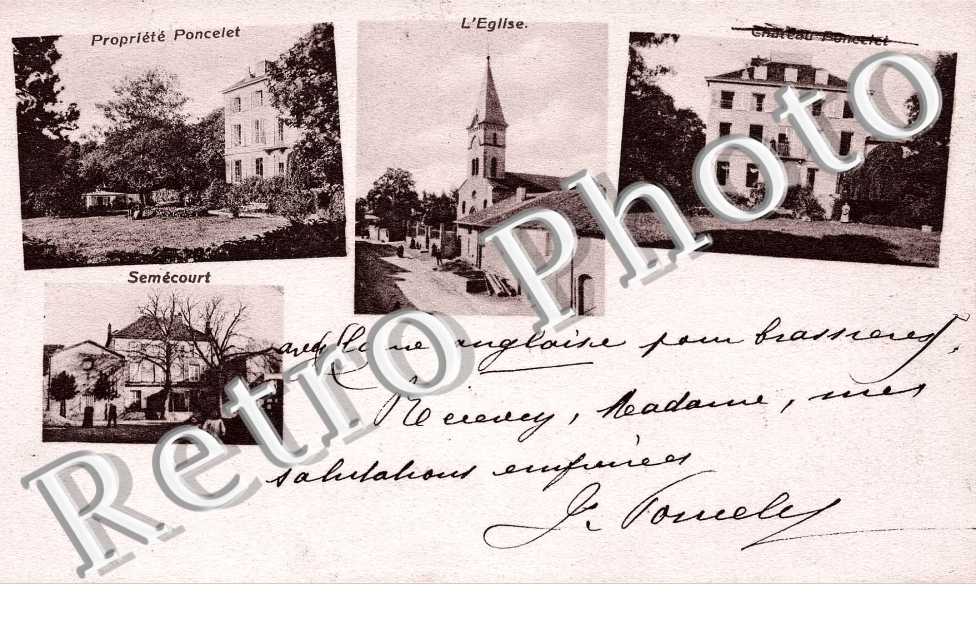 Propriété Poncelet
L'Eglise.
Château Poncelet
Semécourt
avec laine anglaise pour brassières.
Recevez, Madame, mes
salutations empressées
J. Poncelet
Retro Photo